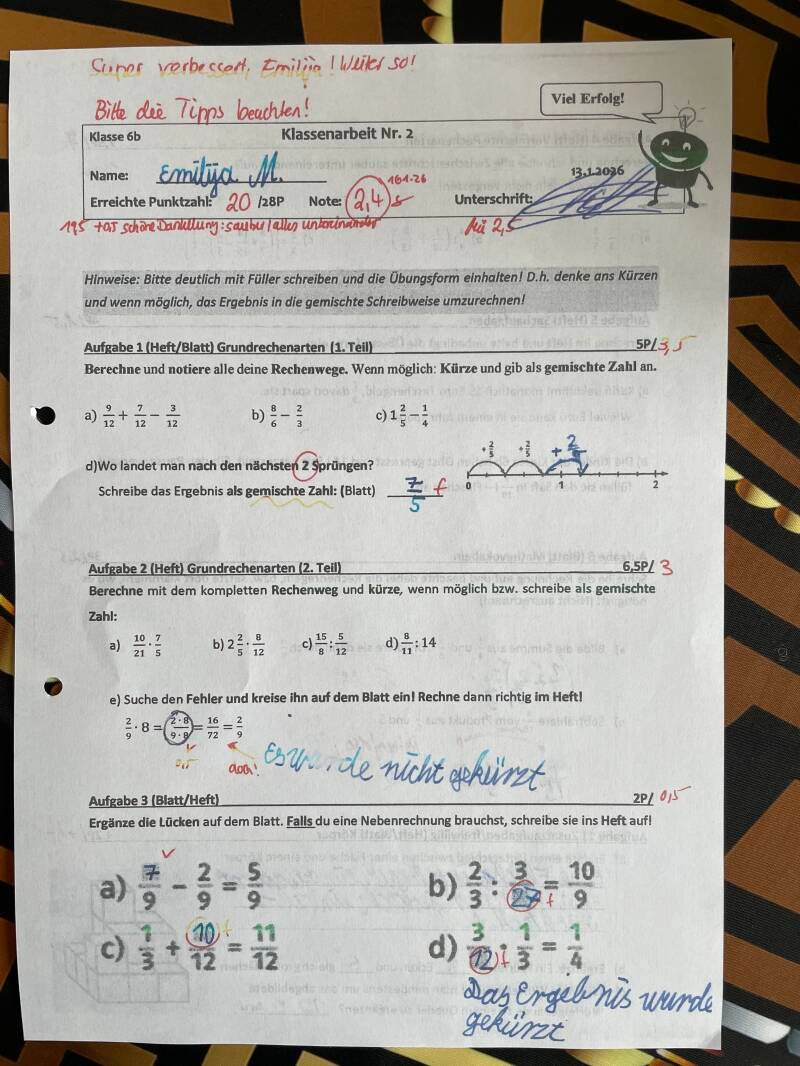 Super verbessert, Emilija! Weiter so!
Bitte die Tipps beachten!
Viel Erfolg!
Klasse 6b Klassenarbeit Nr. 2
Name: Emilija M. 13.1.2026
Erreichte Punktzahl: 20 /28P Note: 2,4 16.1.26 Unterschrift:
19,5 +0,5 schöne Darstellung: sauber/alles untereinander 2,5
Hinweise: Bitte deutlich mit Füller schreiben und die Übungsform einhalten! D.h. denke ans Kürzen
und wenn möglich, das Ergebnis in die gemischte Schreibweise umzurechnen!
Aufgabe 1 (Heft/Blatt) Grundrechenarten (1. Teil) 5P/3,5
Berechne und notiere alle deine Rechenwege. Wenn möglich: Kürze und gib als gemischte Zahl an.
a) 9/12 + 7/12 − 3/12 b) 8/6 − 2/3 c) 1 2/5 − 1/4
d)Wo landet man nach den nächsten 2 Sprüngen? +2/5 +2/5 +2/5
Schreibe das Ergebnis als gemischte Zahl: (Blatt) 7/5 f 0 1 2
Aufgabe 2 (Heft) Grundrechenarten (2. Teil) 6,5P/ 3
Berechne mit dem kompletten Rechenweg und kürze, wenn möglich bzw. schreibe als gemischte
Zahl:
a) 10/21 · 7/5 b) 2 2/5 · 8/12 c) 15/8 : 5/12 d) 8/11 : 14
e) Suche den Fehler und kreise ihn auf dem Blatt ein! Rechne dann richtig im Heft!
2/9 · 8 = 2·8/9·8 = 16/72 = 2/9
0,5 doch! Es wurde nicht gekürzt
Aufgabe 3 (Blatt/Heft) 2P/ 0,5
Ergänze die Lücken auf dem Blatt. Falls du eine Nebenrechnung brauchst, schreibe sie ins Heft auf!
a) 7/9 − 2/9 = 5/9 b) 2/3 : 3/27 = 10/9 f
c) 1/3 + 10/12 = 11/12 f d) 3/12 · 1/3 = 1/4 f
Das Ergebnis wurde
gekürzt